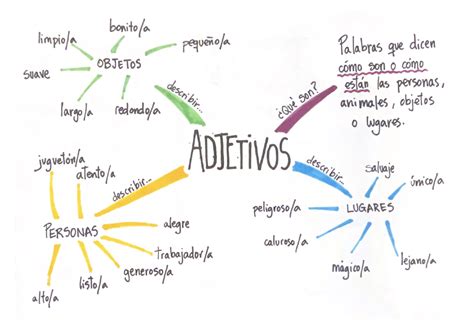 bonito/a
limpio/a
pequeño/a
OBJETOS
suave
largo/a
redondo/a
describir...
¿Qué son?
Palabras que dicen
cómo son o cómo
están las personas,
animales, objetos
o lugares.
ADJETIVOS
juguetón/a
atento/a
describir...
PERSONAS
alegre
trabajador/a
generoso/a
listo/a
alto/a
describir...
salvaje
único/a
peligroso/a
LUGARES
caluroso/a
mágico/a
lejano/a